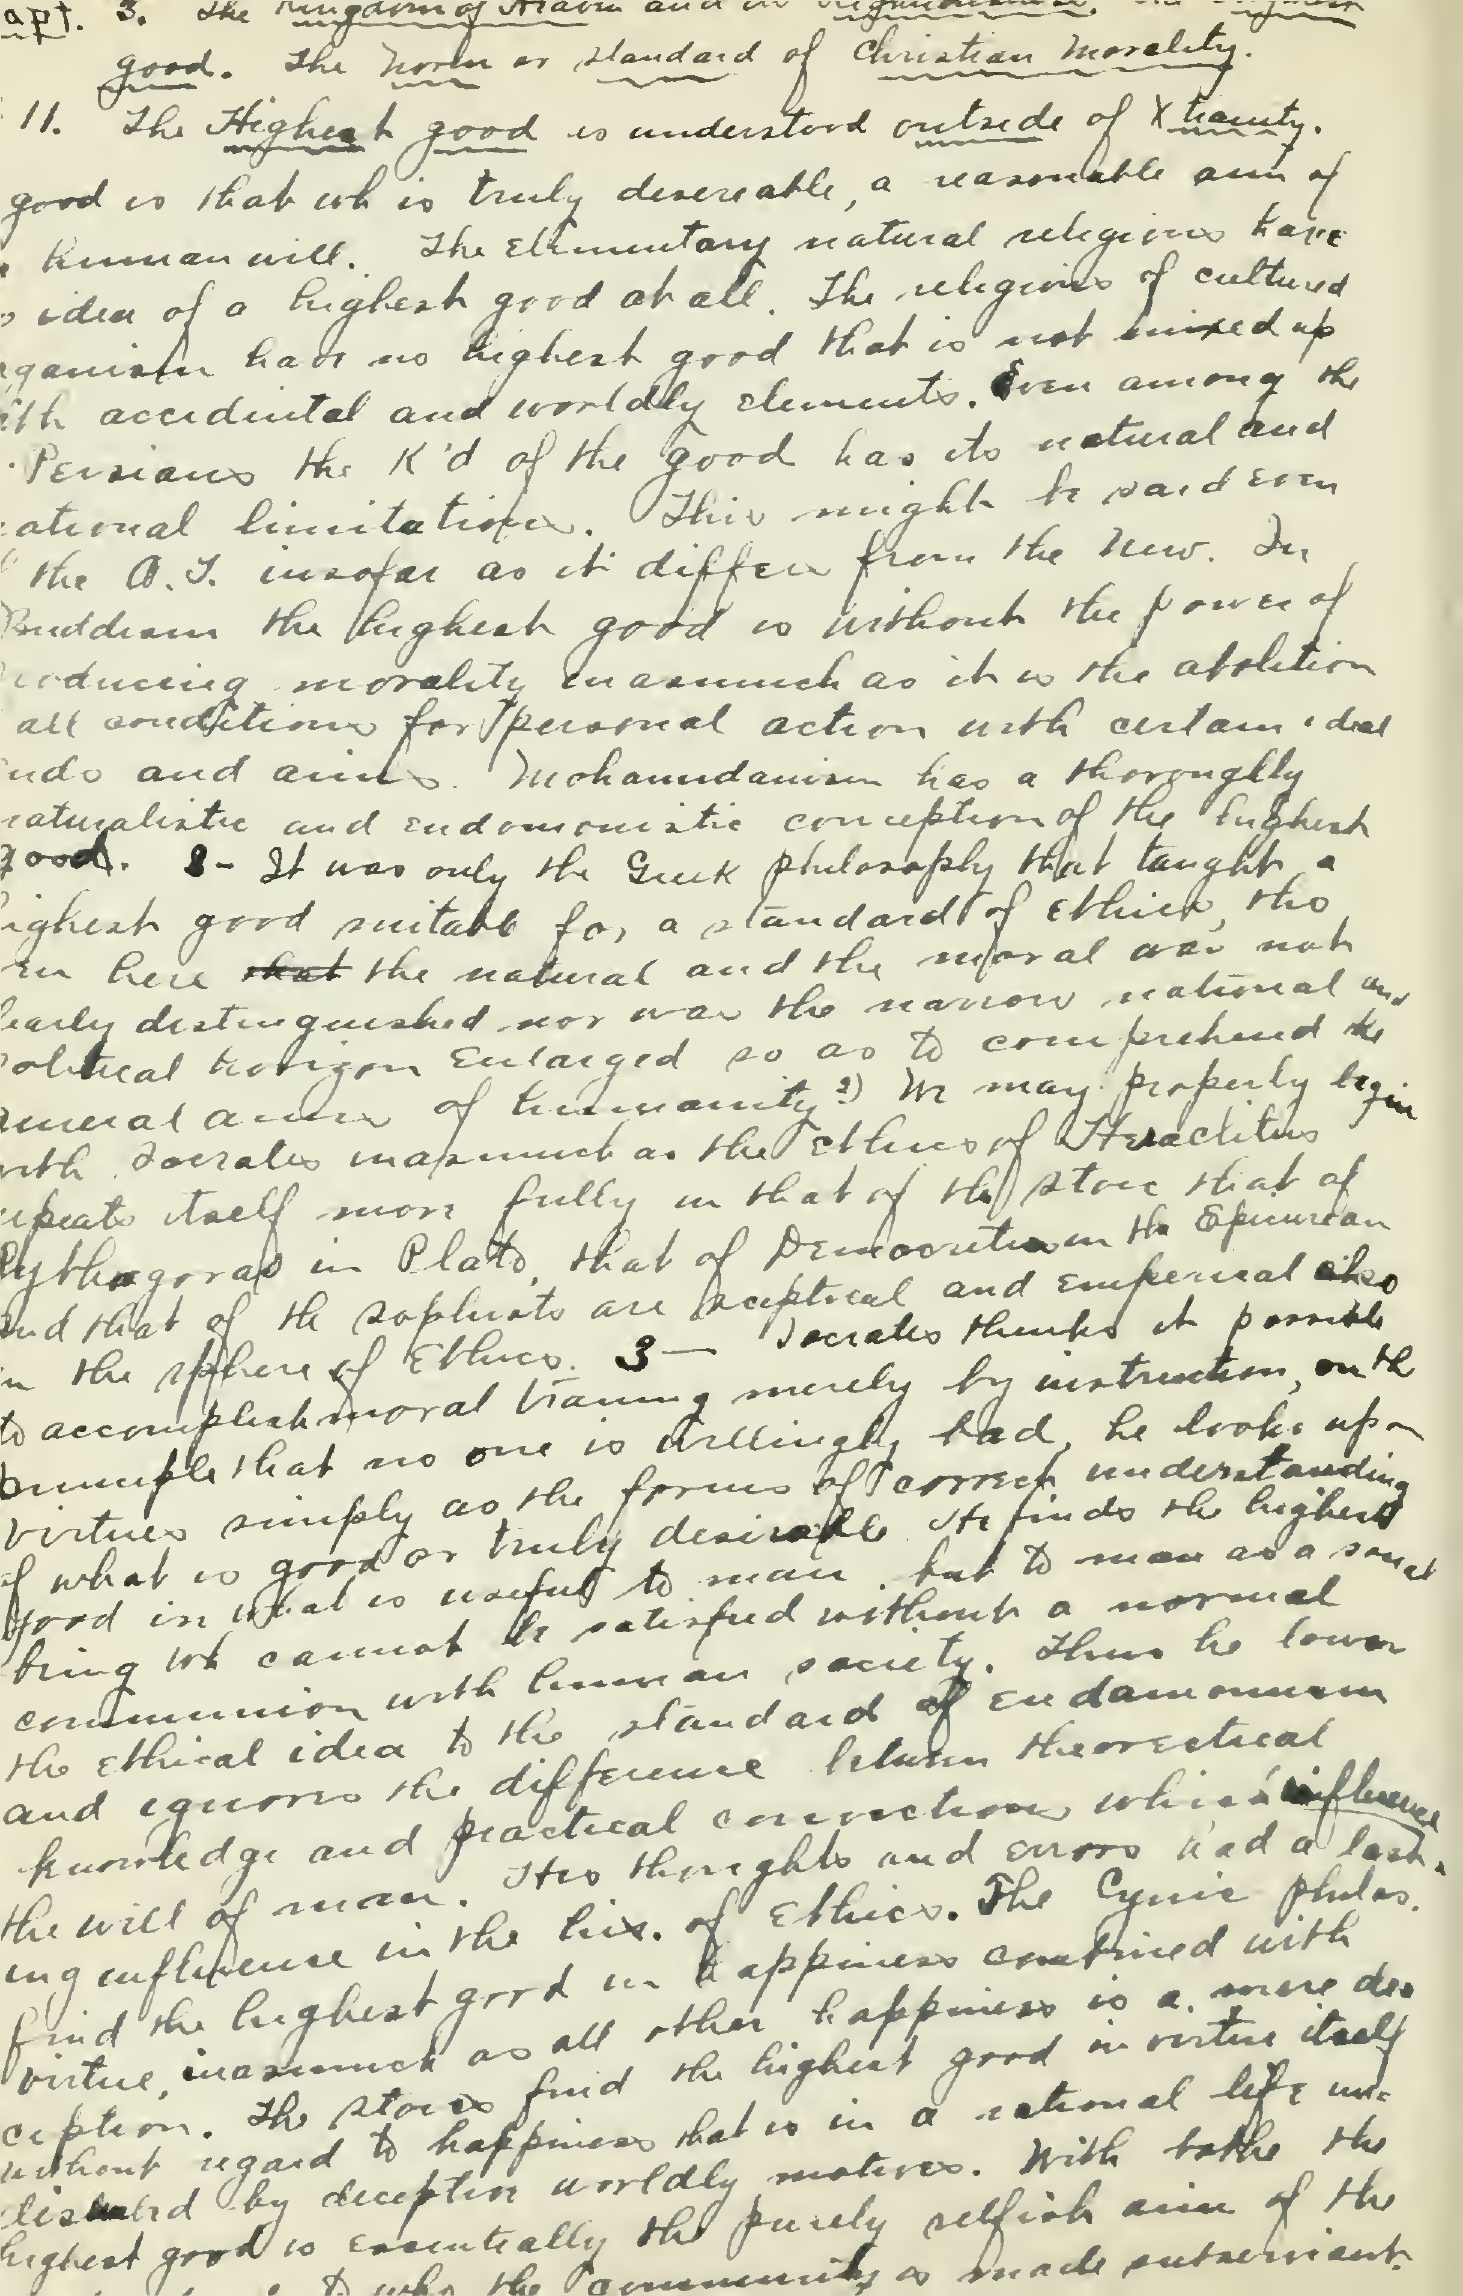 apt. 3. The Kingdom of Heaven and its righteousness. The highest
good. The Norm or standard of Christian Morality.
11. The Highest good is understood outside of Xtianity.
good is that wh is truly desereable, a reasonable aim of
human will. The Elementary natural religions have
idea of a highest good at all. The religions of cultured
ganism have no highest good that is not mixed up
ith accidintal and worldly elements. Even among the
Persians the K'd of the good has its natural and
ational limitations. This might be said even
the O.T. insofar as it differs from the New. In
Buddism the highest good is without the power of
roducing morality inasmuch as it is the abolition
all conditions for personal action with certain ideal
nds and aims. Mohamdanism has a thoroghly
naturalistic and eudomonistic conception of the highest
good. 2- It was only the Greek philosophy that taught a
highest good suitable for a standard of Ethics, tho
en here that the natural and the moral was not
learly distinguished nor was the narrow national and
political horizon Enlarged so as to comprehend the
eneral aims of humanity 2) We may properly begin
with Socrates inasmuch as the Ethics of Heraclitus
repeats itself more fully in that of the stoic that of
Pythagoras in Plato, that of Democritus in the Epicurean
and that of the sophists are sceptical and emperical also
in the sphere of Ethics. 3— Socrates thinks it possible
to accomplish moral traning merely by instruction, on th
principle that no one is willingly bad, he looks upon
virtues simply as the forms of correct understanding
of what is good or truly desirable. He finds the highest
good in what is useful to man, but to man as a social
being wh cannot be satisfied without a normal
communion with human society. Thus he lowers
the ethical idea to the standard of eudamonism
and ignores the difference between theorectical
knowledge and practical convictions which influence
the will of man. His thoughts and errors had a last-
ing influence in the his. of Ethics. The Cynic philos.
find the highest good in happiness combined with
virtue, inasmuch as all other happiness is a mere de-
ception. The stoics find the highest good in virtue itself
without regard to happiness that is in a rational life un-
disturbed by deceptive worldly motives. With bothe the
highest good is essentially the purely selfish aim of the
to who the community is made subservient.